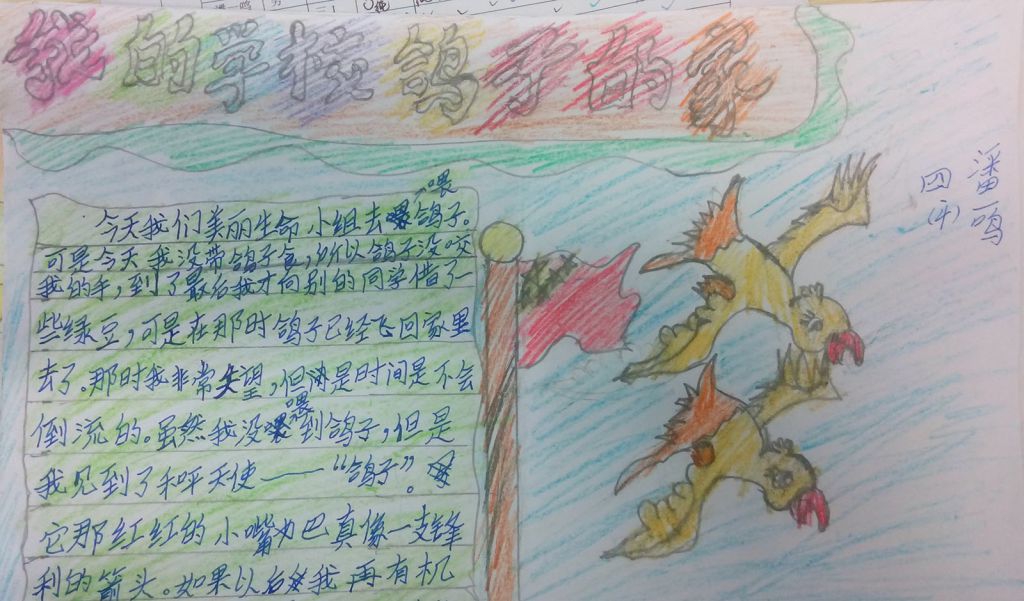 我的学校鸽子的家
潘鸣
四(4)
今天我们美丽生命小组去喂鸽子。
可是今天我没带鸽子食,所以鸽子没咬
我的手,到了最后我才向别的同学借了一
些绿豆,可是在那时鸽子已经飞回家里
去了。那时我非常失望,但是时间是不会
倒流的。虽然我没喂到鸽子,但是
我见到了和呼天使——“鸽子”。
它那红红的小嘴巴真像一支锋
利的箭头。如果以后我再有机